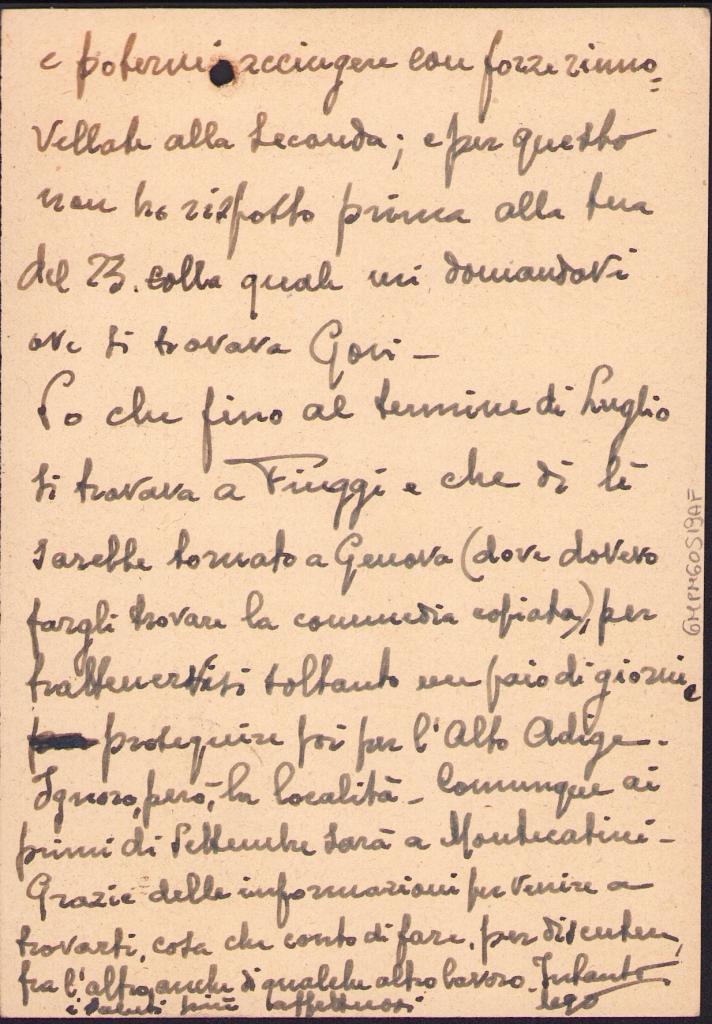 e potermi accingere con forze rinno=
vellate alla seconda; e per questo
non ho risposto prima alla tua
del 23. colla quale mi domandavi
ove si trovava Govi -
So che fino al termine di Luglio
si trovava a Fiuggi e che di lì
sarebbe tornato a Genova (dove dovevo
fargli trovare la commedia copiata), per
trattenervisi soltanto un paio di giorni e
proseguire poi per l'Alto Adige -.
Ignoro, però, la località - Comunque ai
primi di Settembre sarà a Montecatini -
Grazie delle informazioni per venire a
trovarti, cosa che conto di fare, per discutere,
fra l'altro, anche di qualche altro lavoro. Intanto
i saluti più affettuosi
GMPM60S19AF